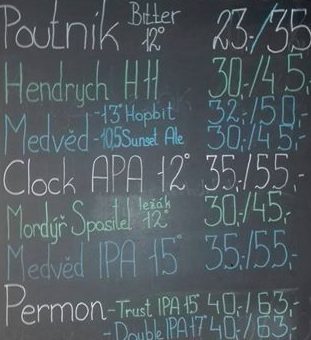 Poutník Bitter 12° 23,-/35
Hendrych H11 30,-/45,-
Medvěd -13° Hopbit 32,-/50,-
-10,5 Sunset Ale 30,-/45,-
Clock APA 12° 35,-/55,-
Mordýř Spasitel ležák 12° 30,-/45,-
Medvěd IPA 15° 35,-/55,-
Permon -Trust IPA 15° 40,-/63,-
-Double IPA 17° 40,-/63,-